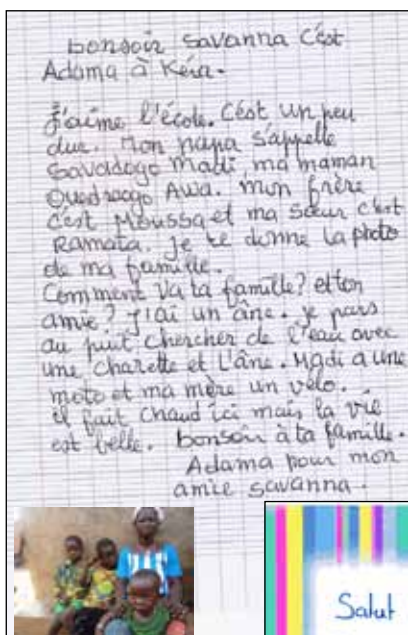 bonsoir savanna C'est
Adama à Kéra.
J'aime l'école. C'est un peu
due. Mon papa s'appelle
Savadogo Madi, ma maman
Ouedraogo Awa. mon frère
c'est Moussa et ma sœur c'est
Ramata. je te donne la photo
de ma famille.
Comment va ta famille? et ton
amie? J'ai un âne. je pars
au puit chercher de l'eau avec
une charette et l'âne. Madi a une
moto et ma mère un vélo.
il fait chaud ici mais la vie
est belle. bonsoir à ta famille.
Adama pour mon
amie savanna.
Salut